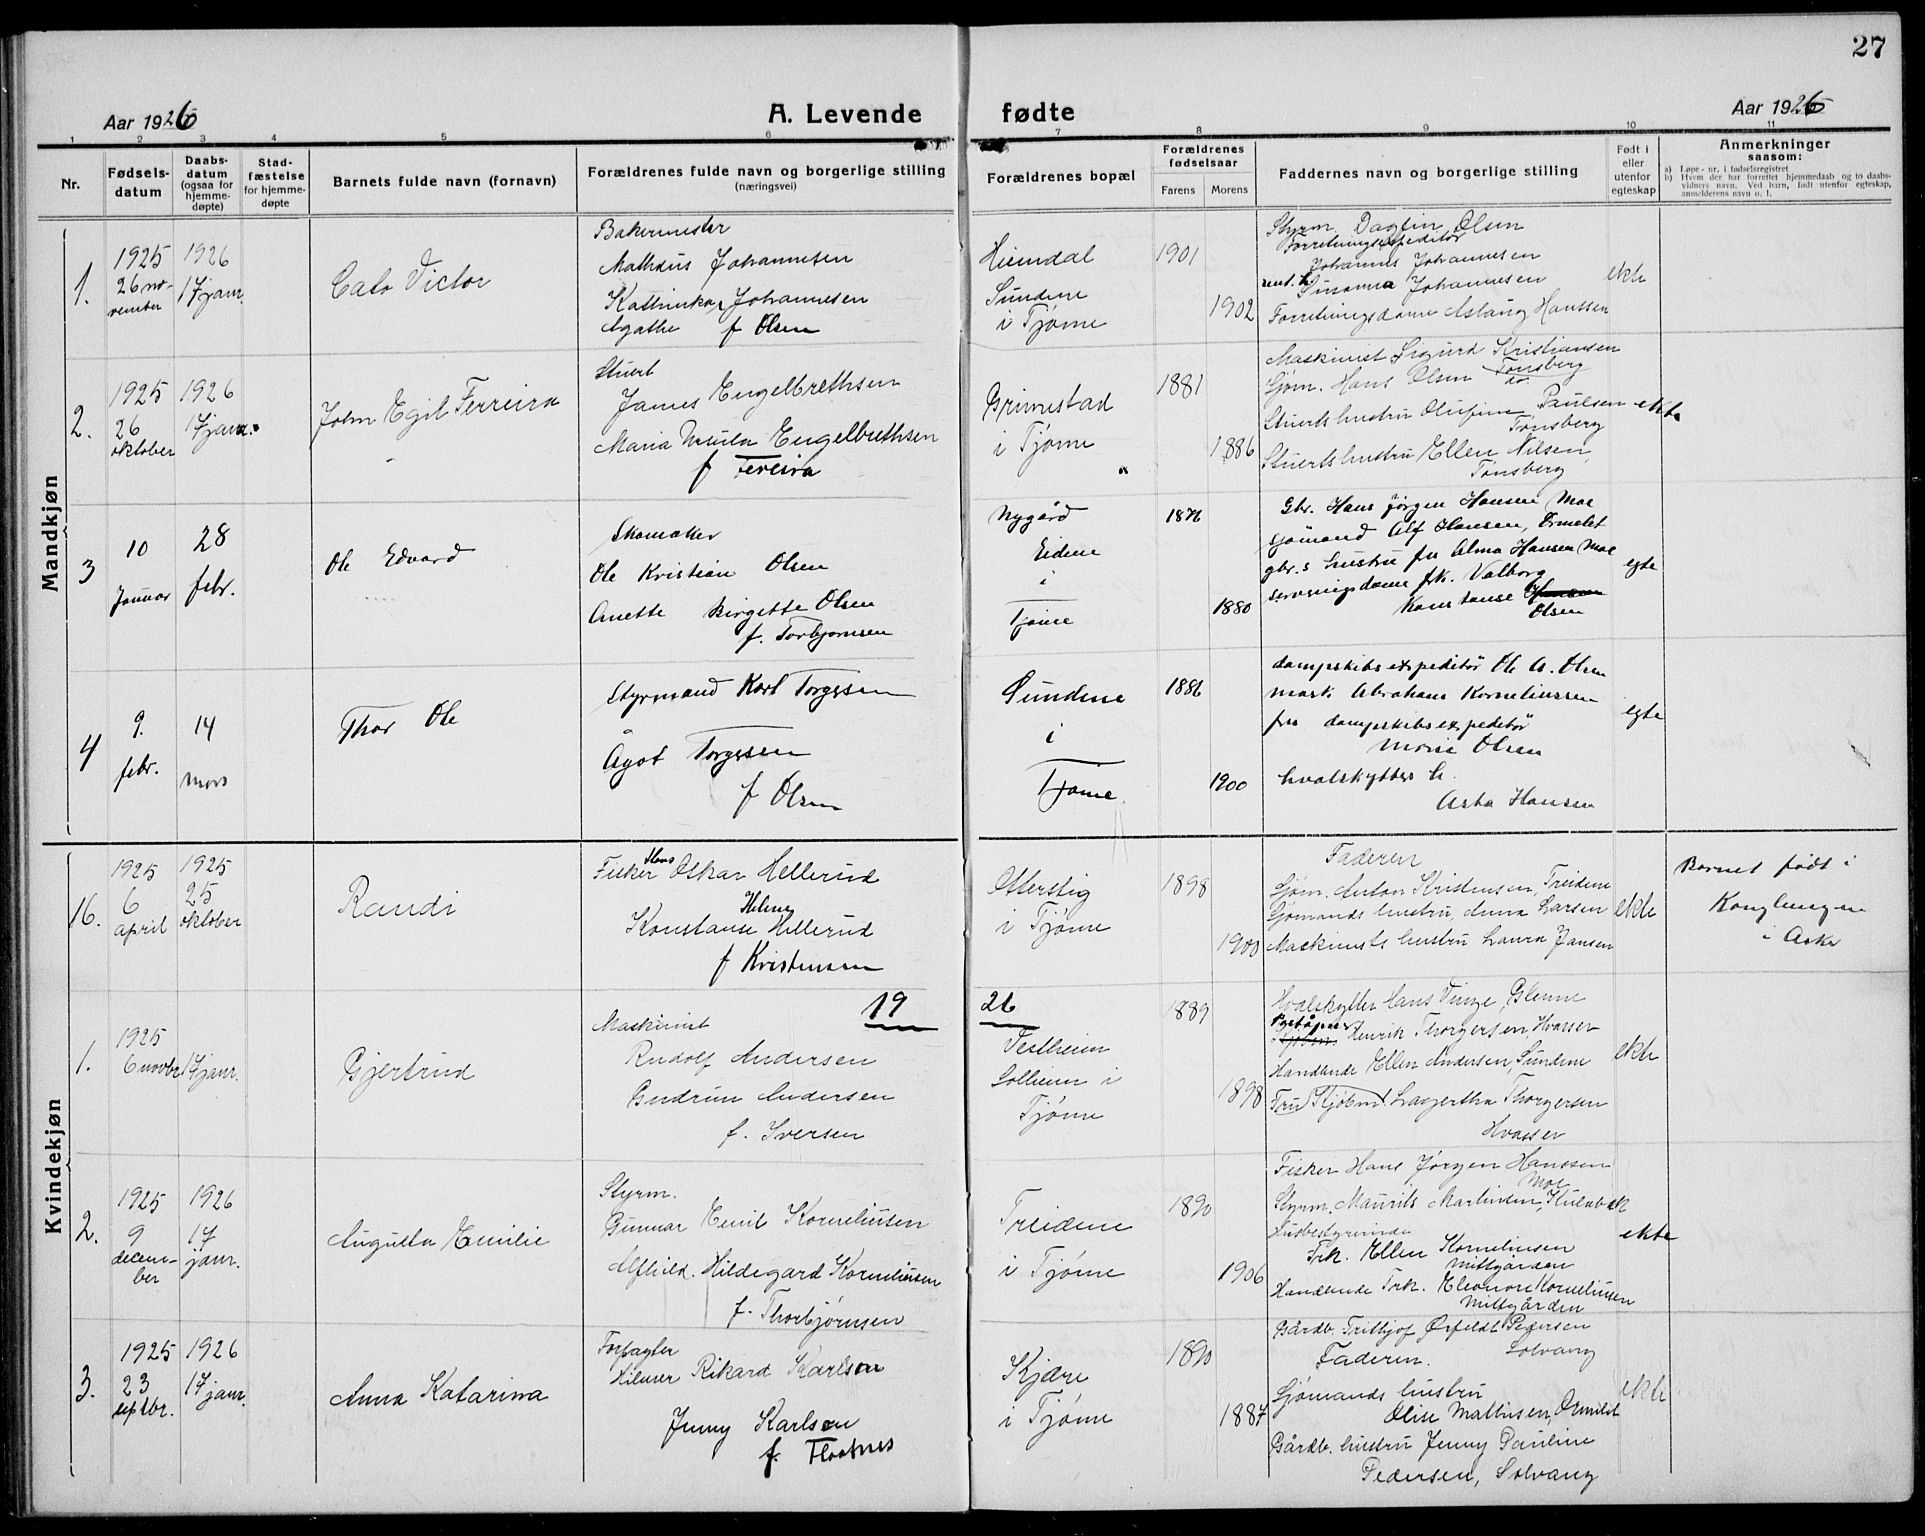 27
Aar 1926
A. Levende fødte
Aar 1926
1 2 3 4 5 6 7 8 9 10 11
Nr.
Fødsels-
datum
Daabs-
datum
(ogsaa for
hjemme-
døpte)
Stad-
fæstelse
for hjemme-
døpte
Barnets fulde navn (fornavn)
Forældrenes fulde navn og borgerlige stilling
(næringsvei)
Forældrenes bopæl
Forældrenes
fødselsaar
Farens Morens
Faddernes navn og borgerlige stilling
Født i
eller
utenfor
egteskap
Anmerkninger
saasom:
a) Løpe-nr. i fødselsregistret
b) Hvem der har forrettet hjemmedaab og to daabs-
vidners navn. Ved barn, født utenfor egteskap,
anmelderens navn o. l.
Mandkjøn
1.
1925
26 no-
vember
1926
17 janr.
Cato Victor
Bakermester
Mathæus Johannesen
Kathinka Johannesen
Agathe f Olsen
Heimdal
Sundene
i Tjøme
1901
1902
Styrm. Dagfin Olsen
Forretningsexpeditør
Johannes Johannesen
Susanna Johannesen
Forretningsdame Aslaug Hanssen
ekte
2.
1925
26
oktober
1926
17 janr.
John Egil Ferreira
Stuert
James Engelbrethsen
Maria Ursula Engelbrethsen
f Fereira
Grimestad
i Tjøme
1881
1886
Maskinist Sigurd Kristiansen
Tønsberg
Sjøm. Hans Olsen do.
Stuerts hustru Olufine Paulsen
Tønsberg
Stuerts hustru Ellen Nilsen
Tønsberg
ekte
3
10
Januar
28
febr.
Ole Edvard
Skomaker
Ole Kristian Olsen
Anette Birgette Olsen
f. Torbjørnsen
Nygård
Eidene
i
Tjøme
1876
1880
Gbr. Hans Jørgen Hansen Moe
sjømand Alf Hansen, Ormelet
gbr.s hustru fru Alma Hansen Moe
serveringsdame frk. Valborg
Konstanse Hansen
Olsen
egte
4
9.
febr.
14
mars
Thor Ole
Styrmand Karl Torgesen
Ågot Torgesen
f Olsen
Sundene
i
Tjøme
1886
1900
dampskibsexpeditør Ole A. Olsen
mask. Abraham Korneliussen
fru dampskibsexpeditør
Marie Olsen
hvalskytters h.
Asta Hansen
egte
Kvindekjøn
16.
1925
6
april
1925
25
oktober
Randi
Hans
Fisker Oskar Hellerud
Helene
Konstanse Hellerud
f Kristensen
Otterstig
i Tjøme
1898
1900
Faderen
Sjøm. Anton Kristensen, Treidene
Sjømands hustru, Anna Larsen
Maskinists hustru Laura Jansen
ekte
Barnet født i
Konglungen
i Asker
19 26
1.
1925
6 novbr
17 janr.
Gjertrud
Maskinist
Rudolf Andersen
Gudrun Andersen
f. Iversen
Vestheim
Solheim i
Tjøme
1889
1898
Hvalskytter Hans Vinge, Glenne
Poståpner
Henrik Thorgersen, Hvasser
Handlende Ellen Andersen, Sundene
Fru Kjøbm. Lagertha Thorgersen
Hvasser
ekte
2.
1925
9
decem-
ber
1926
17
janr.
Augusta Emilie
Styrm.
Gunnar Emil Korneliusen
Alfhild Hildegard Korneliusen
f. Thorbjørnsen
Treidene
i Tjøme
1890
1906
Fisker Hans Jørgen Hanssen
Moe
Styrm. Maurits Martinsen, Kulebæk
Husbestyrerinde
Frk. Ellen Korneliusen
Midtgården
Handlende Frk. Eleonore Korneliusen
Midtgården
ekte
3.
1925
23
septbr.
1926
17 janr.
Anna Katarina
Forpagter
Hilmer Rikard Karlson
Jenny Karlson
f. Floatnes
Kjære
i Tjøme
1890
1887
Gårdb. Frithjof Ørfeldt Pedersen
Solvang
Faderen.
Sjømands hustru
Olise Mathisen, Ormelet
Gårdb. hustru Jenny Pauline
Pedersen, Solvang
ekte